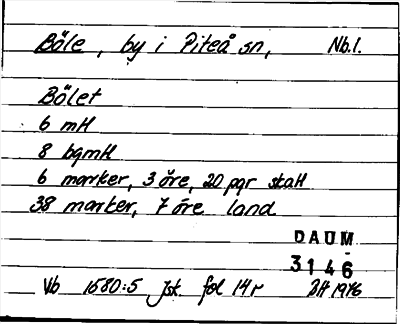 Böle, by i Piteå sn, Nb.l.
Bölet
6 mtl
8 bgmtl
6 marker, 3 öre, 20 pgr skatt
38 marker, 7 öre land
DAUM
3146
Vb 1680:5 Jsk. fol 14r 1976